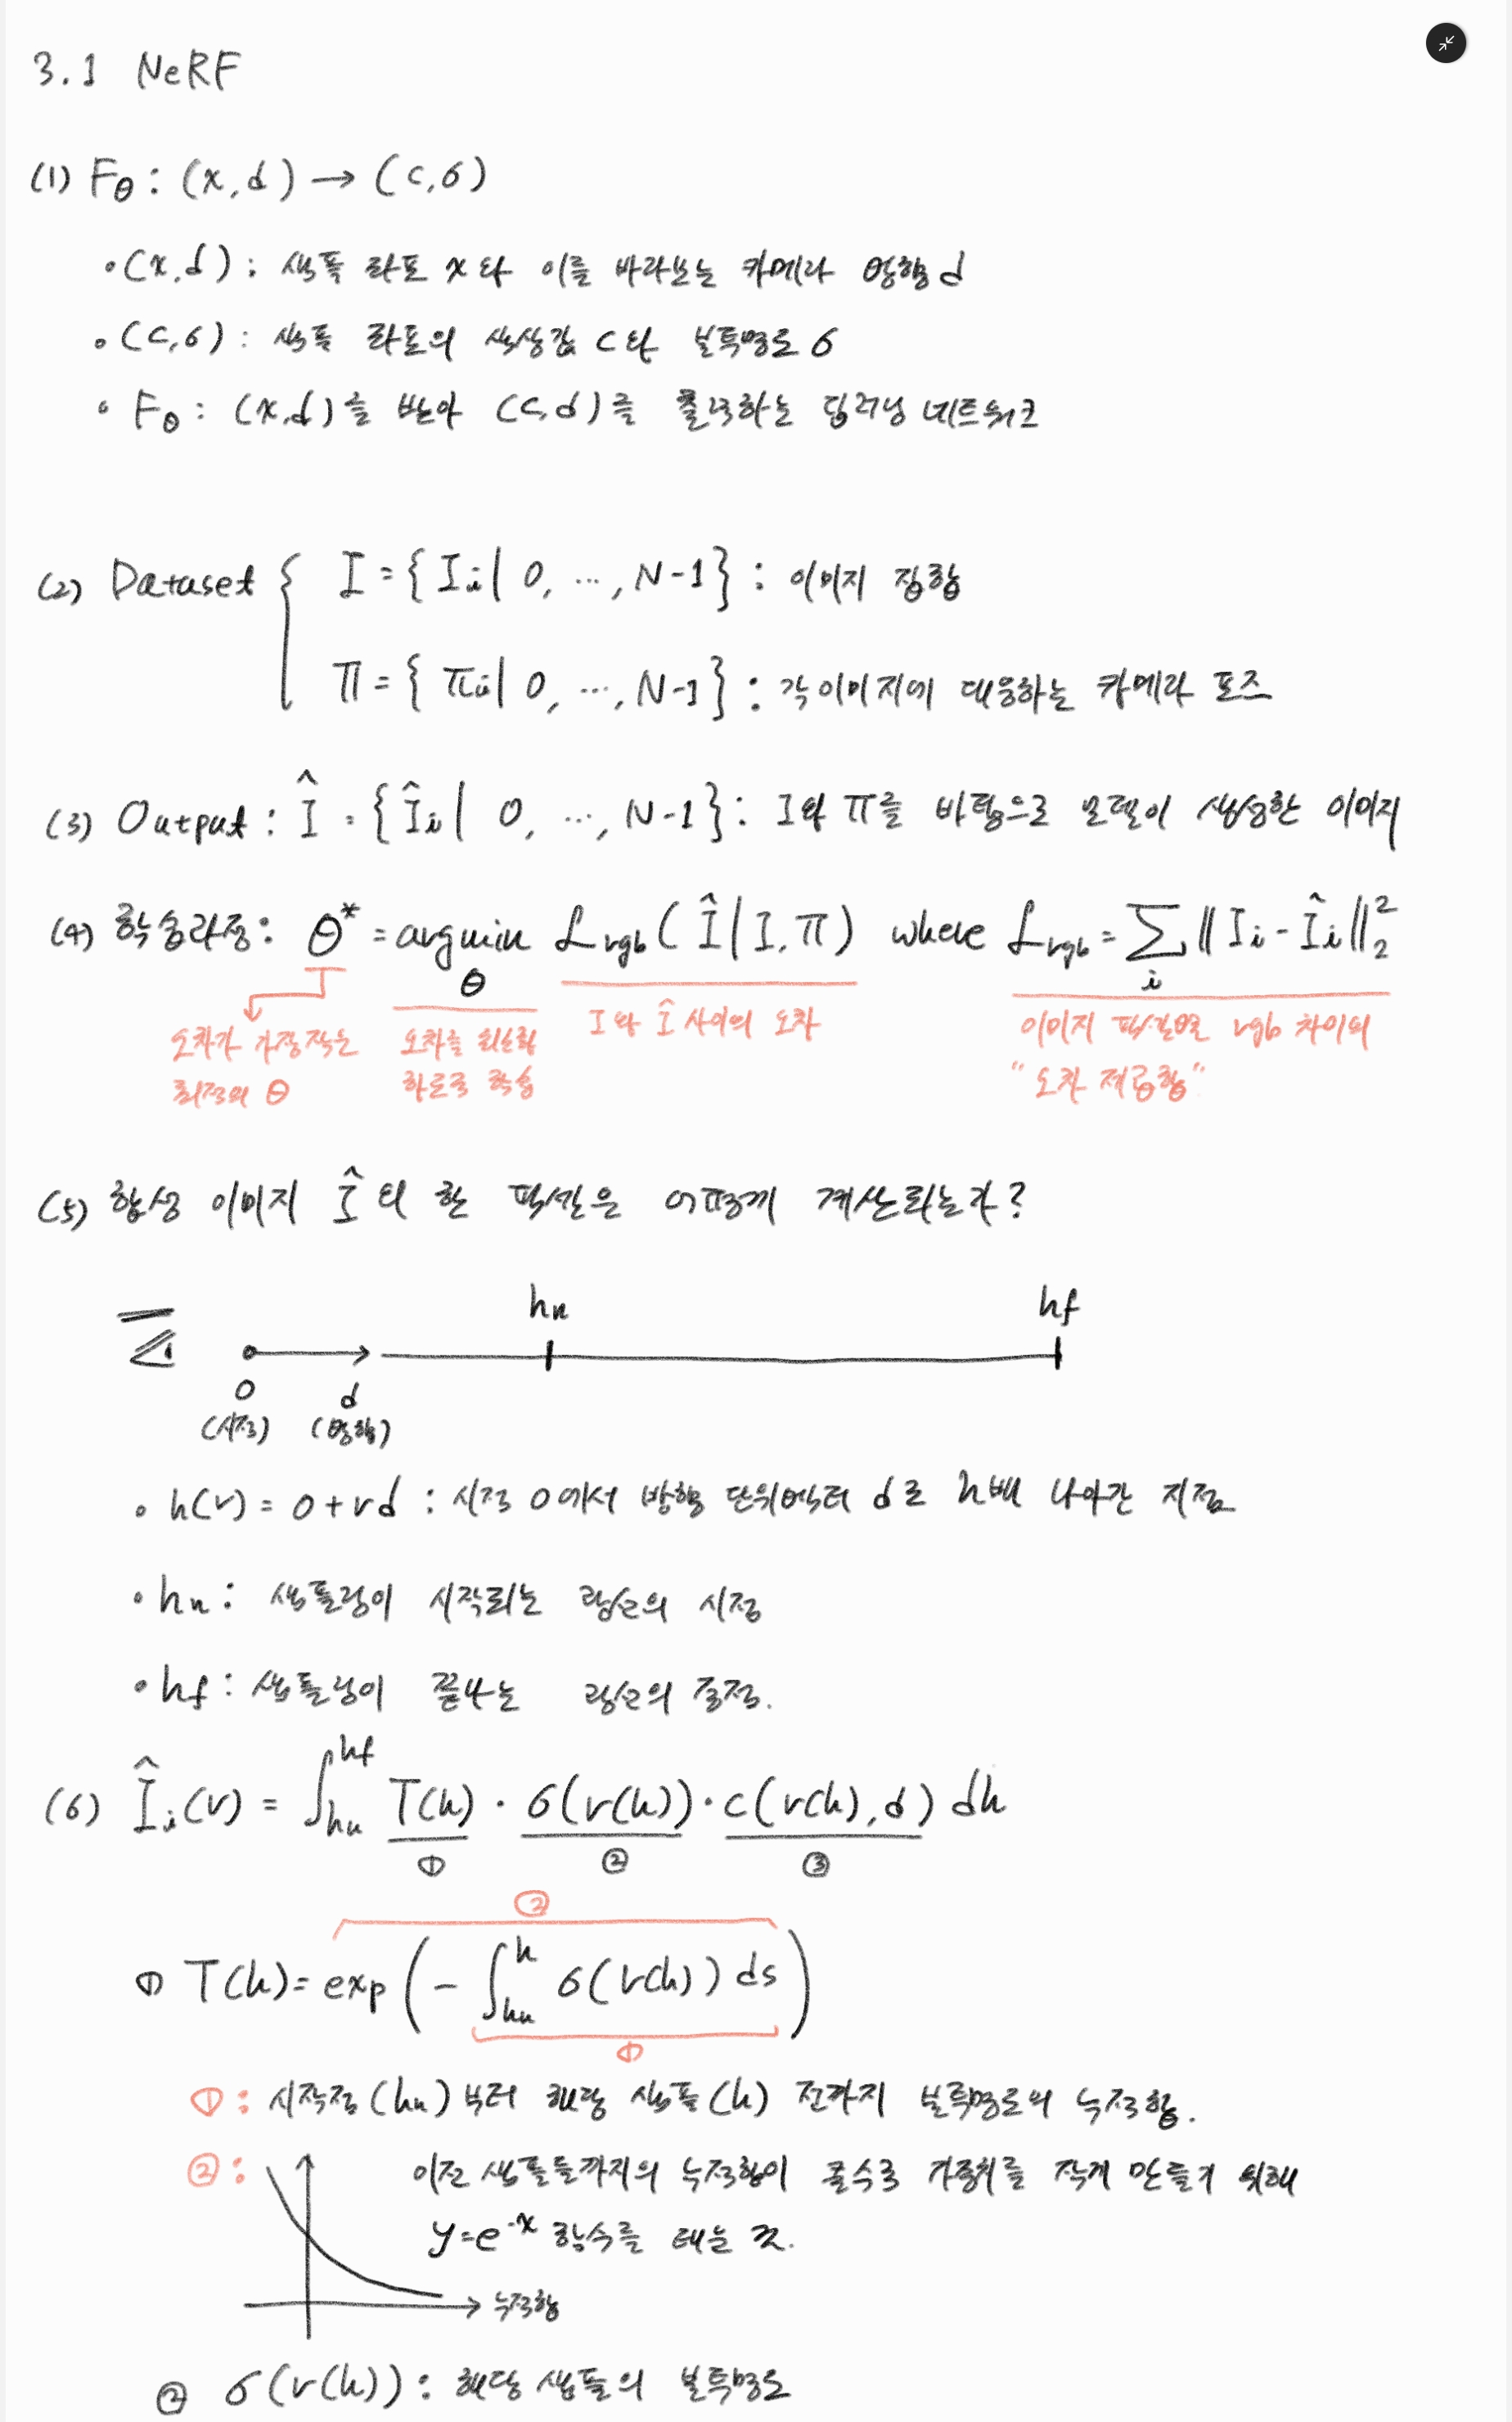 3.1 NeRF
(1) Fθ : (x, d) → (c, σ)
• (x, d) : 샘플 좌표 x와 이를 바라보는 카메라 방향 d
• (c, σ) : 샘플 좌표의 색상값 c와 불투명도 σ
• Fθ : (x, d)를 받아 (c, d)를 출력하는 딥러닝 네트워크
(2) Dataset { I = { Ii | 0, ..., N-1 } : 이미지 집합
Π = { πi | 0, ..., N-1 } : 각 이미지에 대응하는 카메라 포즈
(3) Output : Î = { Îi | 0, ..., N-1 } : I와 Π를 바탕으로 모델이 생성한 이미지
(4) 학습과정 : θ* = argmin θ Lrgb ( Î | I, Π ) where Lrgb = Σ i || Ii - Îi ||²₂
오차가 가장 작은 최적의 θ
오차를 최소화 하도록 학습
I와 Î 사이의 오차
이미지 픽셀별 rgb 차이의
"오차 제곱합"
(5) 합성 이미지 Î의 한 픽셀은 어떻게 계산되는가?
hn hf
o d
(시점) (방향)
• h(r) = o + rd : 시점 o에서 방향 단위벡터 d로 h배 나아간 지점
• hn : 샘플링이 시작되는 광선의 시점
• hf : 샘플링이 끝나는 광선의 종점.
(6) Îi(r) = ∫hn^hf T(h) · σ(r(h)) · c(r(h), d) dh
① ② ③
②
① T(h) = exp ( - ∫hn^h σ(r(h)) ds )
①
① : 시작점(hn)부터 해당 샘플(h) 전까지 불투명도의 누적합.
② : 이전 샘플들까지의 누적합이 클수록 가중치를 작게 만들기 위해
y = e^-x 함수를 태운 것.
누적합
② σ(r(h)) : 해당 샘플의 불투명도